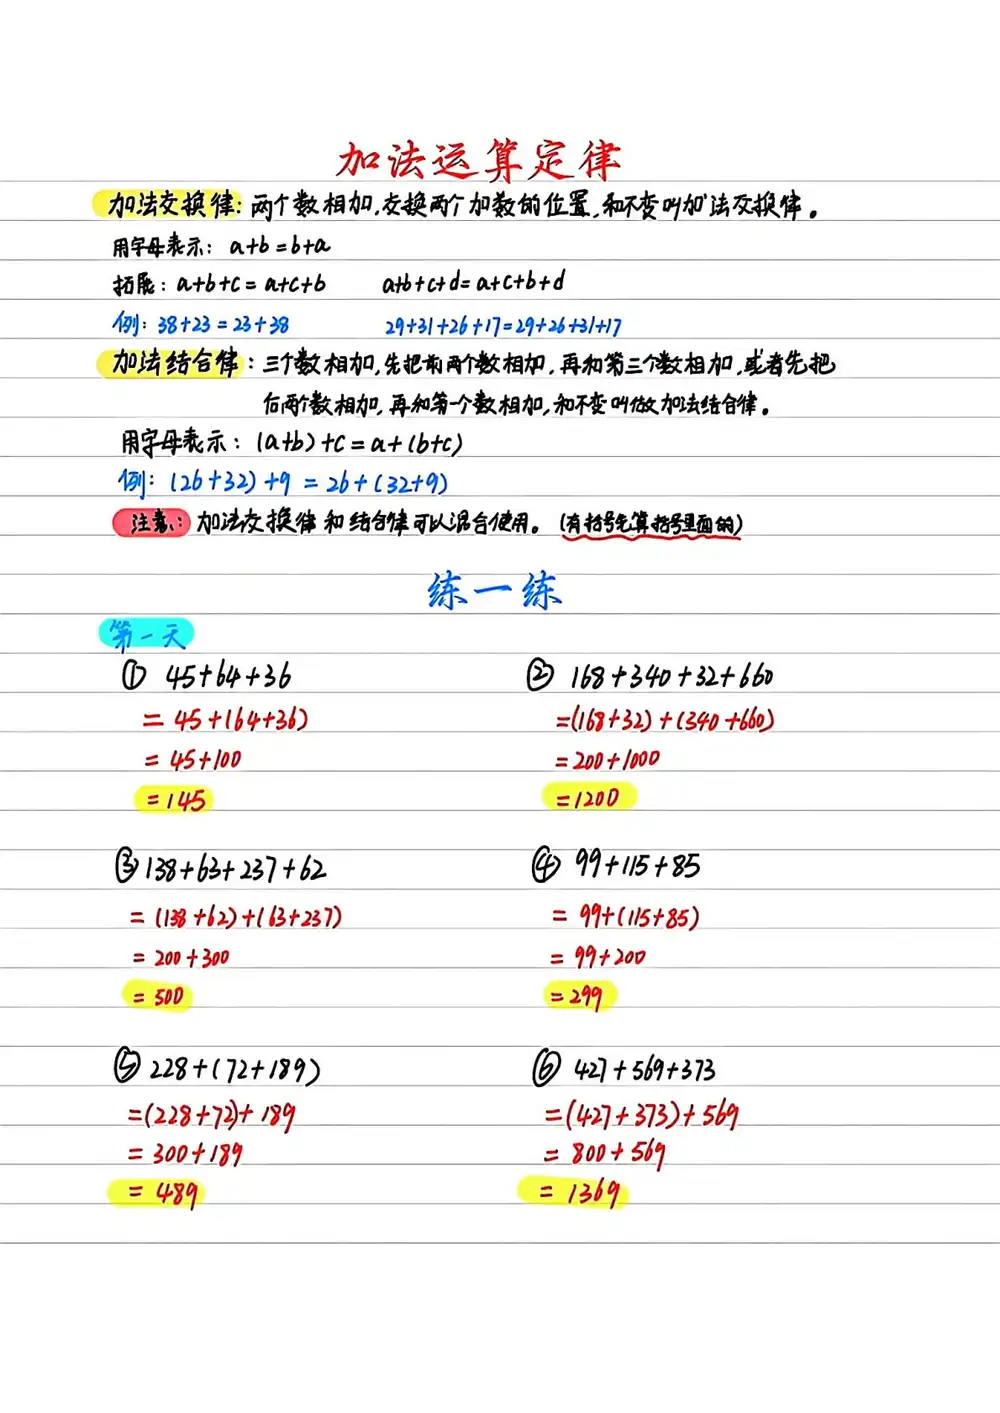 加法运算定律
加法交换律：两个数相加，交换两个加数的位置，和不变叫加法交换律。
用字母表示：a+b=b+a
拓展：a+b+c=a+c+b a+b+c+d=a+c+b+d
例：38+23=23+38 29+31+26+17=29+26+31+17
加法结合律：三个数相加，先把前两个数相加，再和第三个数相加，或者先把
后两个数相加，再和第一个数相加，和不变叫做加法结合律。
用字母表示：(a+b)+c=a+(b+c)
例：(26+32)+9=26+(32+9)
注意：加法交换律和结合律可以混合使用。(有括号先算括号里面的)
练一练
第一天
① 45+64+36
=45+(64+36)
=45+100
=145
② 168+340+32+660
=(168+32)+(340+660)
=200+1000
=1200
③ 138+63+237+62
=(138+62)+(63+237)
=200+300
=500
④ 99+115+85
=99+(115+85)
=99+200
=299
⑤ 228+(72+189)
=(228+72)+189
=300+189
=489
⑥ 427+569+373
=(427+373)+569
=800+569
=1369